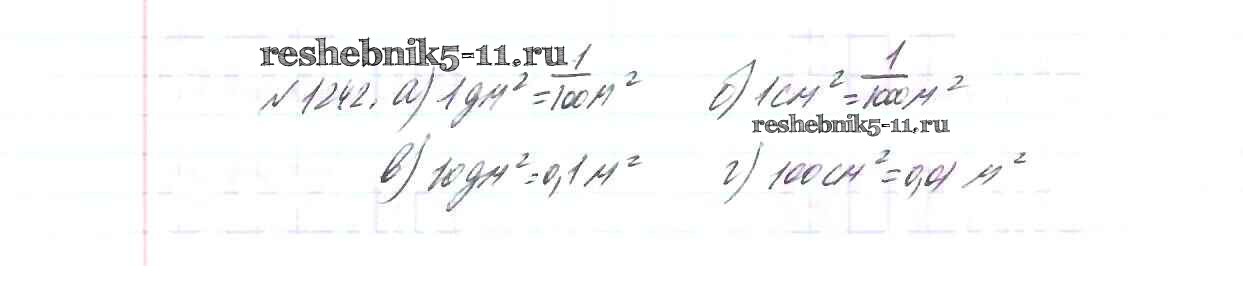 reshebnik5-11.ru
№1242. а) 1дм² = 1/100 м² б) 1см² = 1/1000 м²
reshebnik5-11.ru
в) 10дм² = 0,1 м² г) 100см² = 0,01 м²